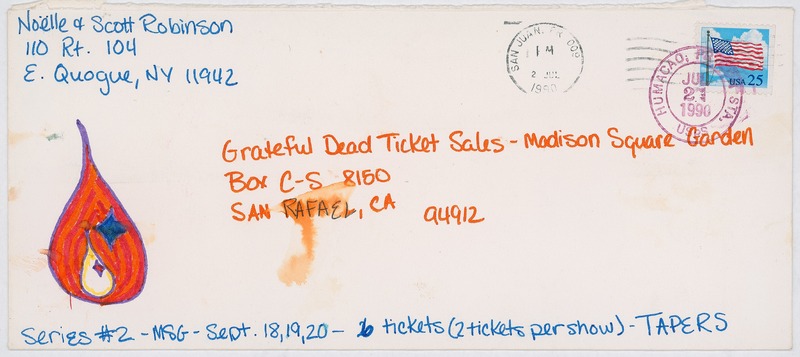 Noëlle & Scott Robinson
110 Rt. 104
E. Quogue, NY 11942
SAN JUAN, PR 009
PM
2 JUL
1990
USA 25
HUMACAO, PR
STA.
1990
USPS
Grateful Dead Ticket Sales - Madison Square Garden
Box C-S 8150
SAN RAFAEL, CA 94912
Series #2 - MSG - Sept. 18,19,20 - 6 tickets (2 tickets per show) - TAPERS